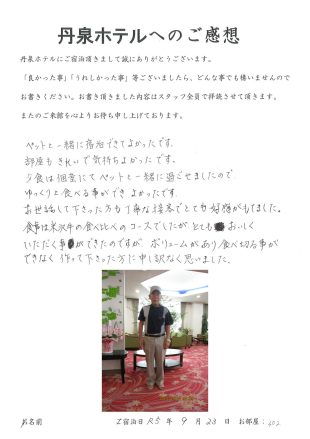 丹泉ホテルへのご感想
丹泉ホテルにご宿泊頂きまして誠にありがとうございます。
「良かった事」「うれしかった事」等ございましたら、どんな事でも構いませんので
お書きください。お書き頂きました内容はスタッフ全員で拝読させて頂きます。
またのご来館を心よりお待ち申し上げております。
ペットと一緒に宿泊できてよかったです。
部屋もきれいで気持ちよかったです。
夕食は個室にてペットと一緒に過ごせましたので
ゆっくりと食べる事ができよかったです。
お世話して下さった方も丁寧な接客でとても好感がもてました。
食事は米沢牛の食べ比べのコースでしたが、とても おいしく
いただく事ができたのですが ボリュームがあり食べ切る事が
できなく 作って下さった方に申し訳なく思いました。
お名前 ご宿泊日 R5 年 9 月 23 日 お部屋: 602